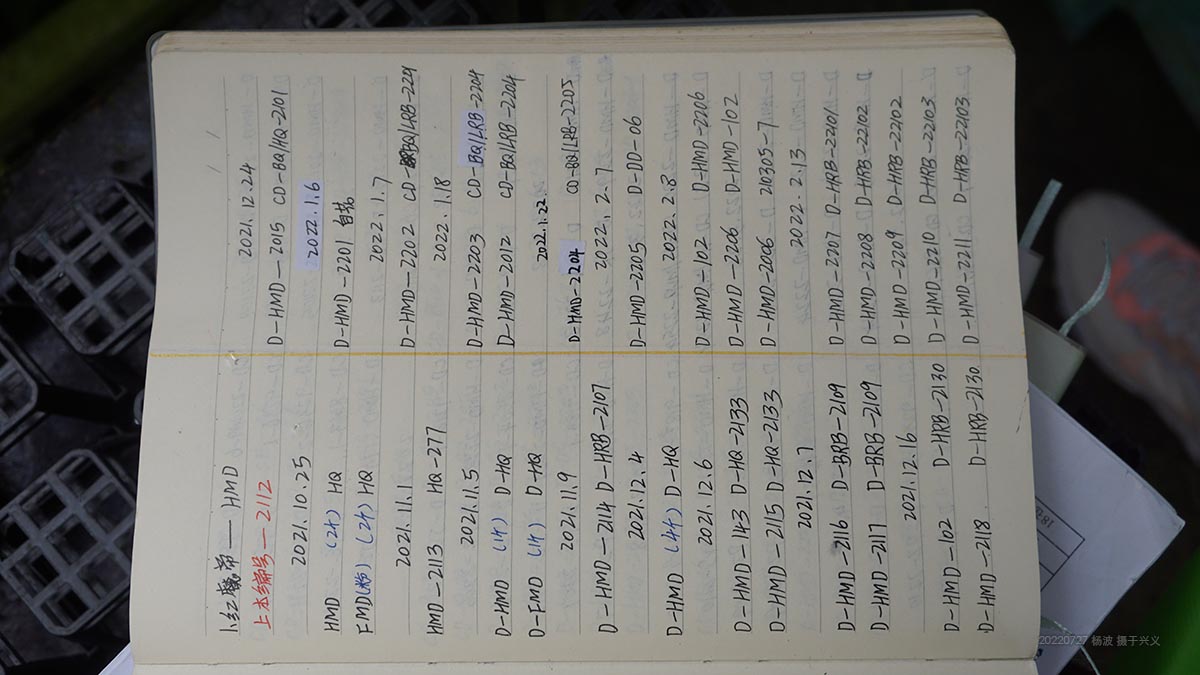 1. 红魔帝 — HMD
上本编号 — 2112
2021.10.25
HMD (2个) HQ
FMD(粉) (2个) HQ
2021.11.1
HMD — 2113 HQ-277
2021.11.5
D-HMD (1个) D-HQ
D-FMD (1个) D-HQ
2021.11.9
D-HMD — 2114 D-HRB-2107
2021.12.4
D-HMD (4个) D-HQ
2021.12.6
D-HMD — 143 D-HQ-2133
D-HMD — 2115 D-HQ-2133
2021.12.7
D-HMD — 2116 D-BRB-2109
D-HMD — 2117 D-BRB-2109
2021.12.16
D-HMD — 102 D-HRB-2130
D-HMD — 2118 D-HRB-2130
2021.12.24
D-HMD — 2015 CD-BQ/HQ-2101
2022.1.6
D-HMD — 2201
2022.1.7
D-HMD — 2202 CD-BQ/LRB-2201
2022.1.18
D-HMD — 2203 CD-BQ/LRB-2204
D-HMD — 2012 CD-BQ/LRB-2204
2022.1.22
D-HMD-2204 CD-BQ/LRB-2205
2022.2.7
D-HMD — 2205 D-DD-06
2022.2.8
D-HMD — 102 D-HMD-2206
D-HMD — 2206 D-HMD-102
D-HMD — 2006 20305-7
2022.2.13
D-HMD — 2207 D-HRB-22101
D-HMD — 2208 D-HRB-22102
D-HMD — 2209 D-HRB-22102
D-HMD — 2210 D-HRB-22103
D-HMD — 2211 D-HRB-22103
20220727 杨波 摄于兴义